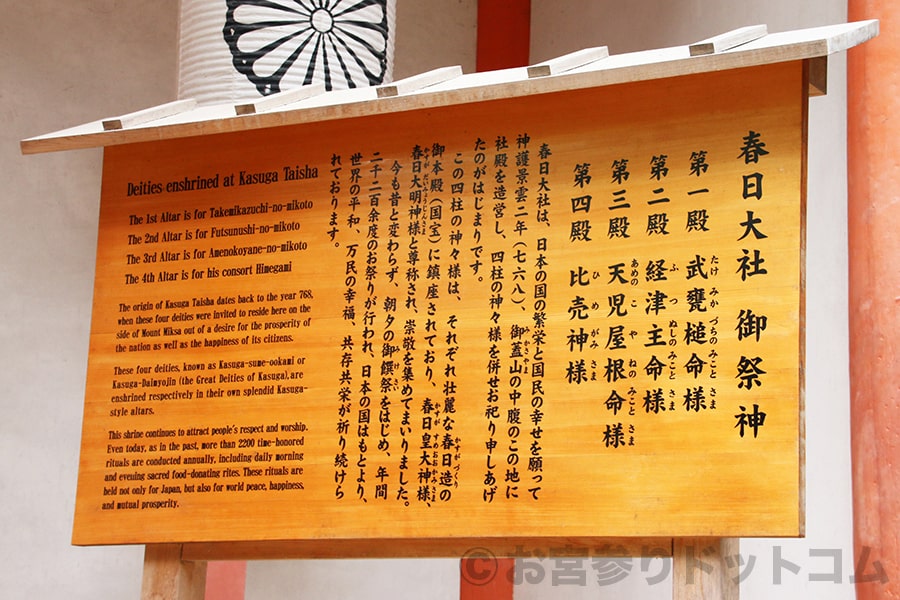 春日大社 御祭神
第一殿 武甕槌命様
たけ みか づちの みこと さま
第二殿 経津主命様
ふ つ ぬしの みこと さま
第三殿 天児屋根命様
あめの こ や ねの みこと さま
第四殿 比売神様
ひ め がみ さま
春日大社は、日本の国の繁栄と国民の幸せを願って
神護景雲二年（七六八）、御蓋山の中腹のこの地に
みかさやま
社殿を造営し、四柱の神々様を併せお祀り申しあげ
たのがはじまりです。
この四柱の神々様は、それぞれ壮麗な春日造の
かすがづくり
御本殿（国宝）に鎮座されており、春日皇大神様、
かすが すめおおかみさま
春日大明神様と尊称され、崇敬を集めてまいりました。
かすが だいみょうじんさま
今も昔と変わらず、朝夕の御饌祭をはじめ、年間
みけさい
二千二百余度のお祭りが行われ、日本の国はもとより、
世界の平和、万民の幸福、共存共栄が祈り続けら
れております。
Deities enshrined at Kasuga Taisha
The 1st Altar is for Takemikazuchi-no-mikoto
The 2nd Altar is for Futsunushi-no-mikoto
The 3rd Altar is for Amenokoyane-no-mikoto
The 4th Altar is for his consort Himegami
The origin of Kasuga Taisha dates back to the year 768,
when these four deities were invited to reside here on the
side of Mount Miksa out of a desire for the prosperity of
the nation as well as the happiness of its citizens.
These four deities, known as Kasuga-sume-ookami or
Kasuga-Daimyojin (the Great Deities of Kasuga), are
enshrined respectively in their own splendid Kasuga-
style altars.
This shrine continues to attract people's respect and worship.
Even today, as in the past, more than 2200 time-honored
rituals are conducted annually, including daily morning
and evening sacred food-donating rites. These rituals are
held not only for Japan, but also for world peace, happiness,
and mutual prosperity.
©お宮参りドットコム